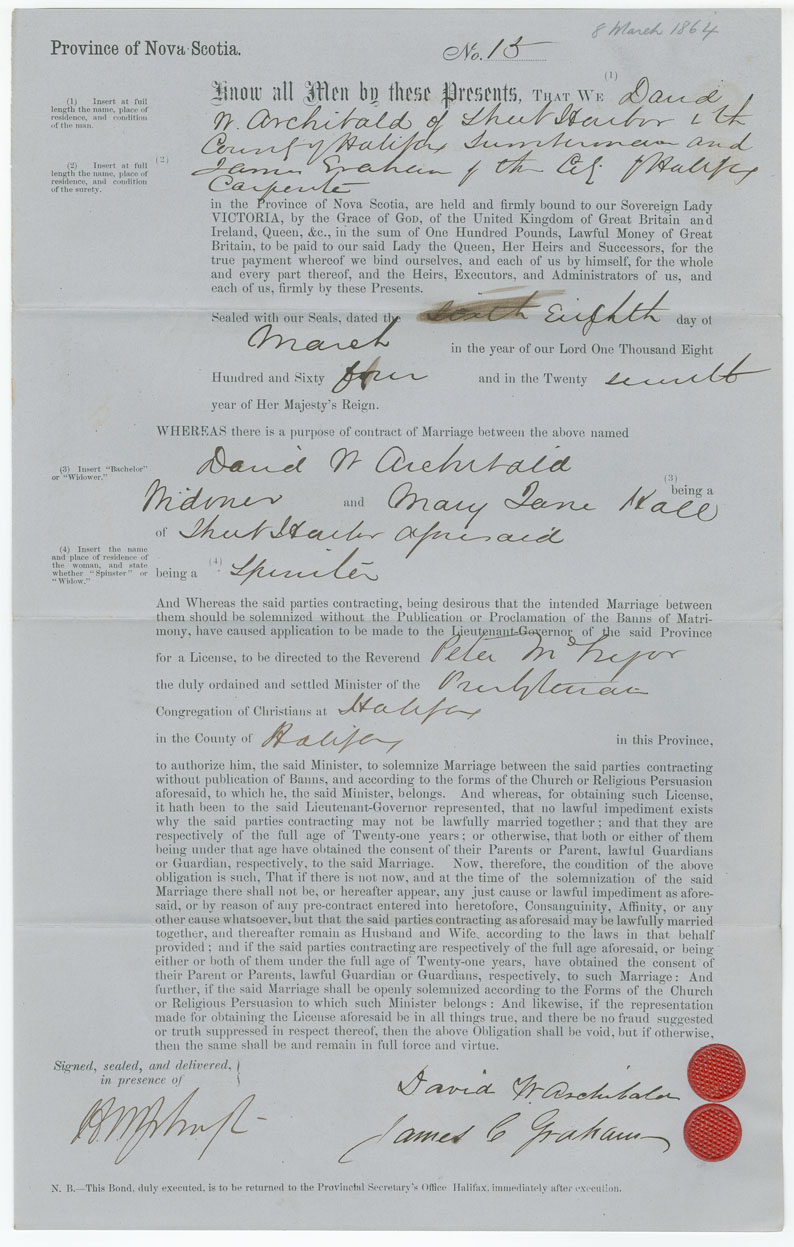 8 March 1864
Province of Nova Scotia.
No. 15
(1)
Know all Men by these Presents, THAT WE David
(1) Insert at full
length the name, place of
residence, and condition
of the man.
W. Archibald of Sheet Harbor in the
County of Halifax Lumberman and
(2) Insert at full
length the name, place of
residence, and condition
of the surety.
(2)
James Graham of the City of Halifax
Carpenter
in the Province of Nova Scotia, are held and firmly bound to our Sovereign Lady
VICTORIA, by the Grace of GOD, of the United Kingdom of Great Britain and
Ireland, Queen, &c., in the sum of One Hundred Pounds, Lawful Money of Great
Britain, to be paid to our said Lady the Queen, Her Heirs and Successors, for the
true payment whereof we bind ourselves, and each of us by himself, for the whole
and every part thereof, and the Heirs, Executors, and Administrators of us, and
each of us, firmly by these Presents.
Sealed with our Seals, dated the sixth Eighth day of
March in the year of our Lord One Thousand Eight
Hundred and Sixty four and in the Twenty seventh
year of Her Majesty's Reign.
WHEREAS there is a purpose of contract of Marriage between the above named
David W Archibald
(3) Insert "Bachelor"
or "Widower."
(3)
being a
Widower and Mary Jane Hall
of Sheet Harbor aforesaid
(4) Insert the name
and place of residence of
the woman, and state
whether "Spinster" or
"Widow."
being a (4) Spinster
And Whereas the said parties contracting, being desirous that the intended Marriage between
them should be solemnized without the Publication or Proclamation of the Banns of Matri-
mony, have caused application to be made to the Lieutenant-Governor of the said Province
for a License, to be directed to the Reverend Peter McGregor
the duly ordained and settled Minister of the Presbyterian
Congregation of Christians at Halifax
in the County of Halifax in this Province,
to authorize him, the said Minister, to solemnize Marriage between the said parties contracting
without publication of Banns, and according to the forms of the Church or Religious Persuasion
aforesaid, to which he, the said Minister, belongs. And whereas, for obtaining such License,
it hath been to the said Lieutenant-Governor represented, that no lawful impediment exists
why the said parties contracting may not be lawfully married together; and that they are
respectively of the full age of Twenty-one years; or otherwise, that both or either of them
being under that age have obtained the consent of their Parents or Parent, lawful Guardians
or Guardian, respectively, to the said Marriage. Now, therefore, the condition of the above
obligation is such, That if there is not now, and at the time of the solemnization of the said
Marriage there shall not be, or hereafter appear, any just cause or lawful impediment as afore-
said, or by reason of any pre-contract entered into heretofore, Consanguinity, Affinity, or any
other cause whatsoever, but that the said parties contracting as aforesaid may be lawfully married
together, and thereafter remain as Husband and Wife, according to the laws in that behalf
provided; and if the said parties contracting are respectively of the full age aforesaid, or being
either or both of them under the full age of Twenty-one years, have obtained the consent of
their Parent or Parents, lawful Guardian or Guardians, respectively, to such Marriage: And
further, if the said Marriage shall be openly solemnized according to the Forms of the Church
or Religious Persuasion to which such Minister belongs: And likewise, if the representation
made for obtaining the License aforesaid be in all things true, and there be no fraud suggested
or truth suppressed in respect thereof, then the above Obligation shall be void, but if otherwise,
then the same shall be and remain in full force and virtue.
Signed, sealed, and delivered,
in presence of
David W. Archibald
James C Graham
N. B.—This Bond, duly executed, is to be returned to the Provincial Secretary's Office Halifax, immediately after execution.